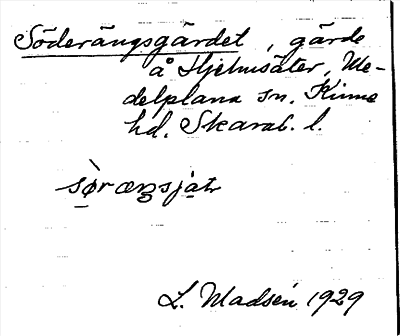 Söderängsgärdet, gärde
å Hjelmsäter, Me-
delplana sn. Kinne
hd. Skarab. l.
sø̀ræŋsjatr
L. Madsén 1929